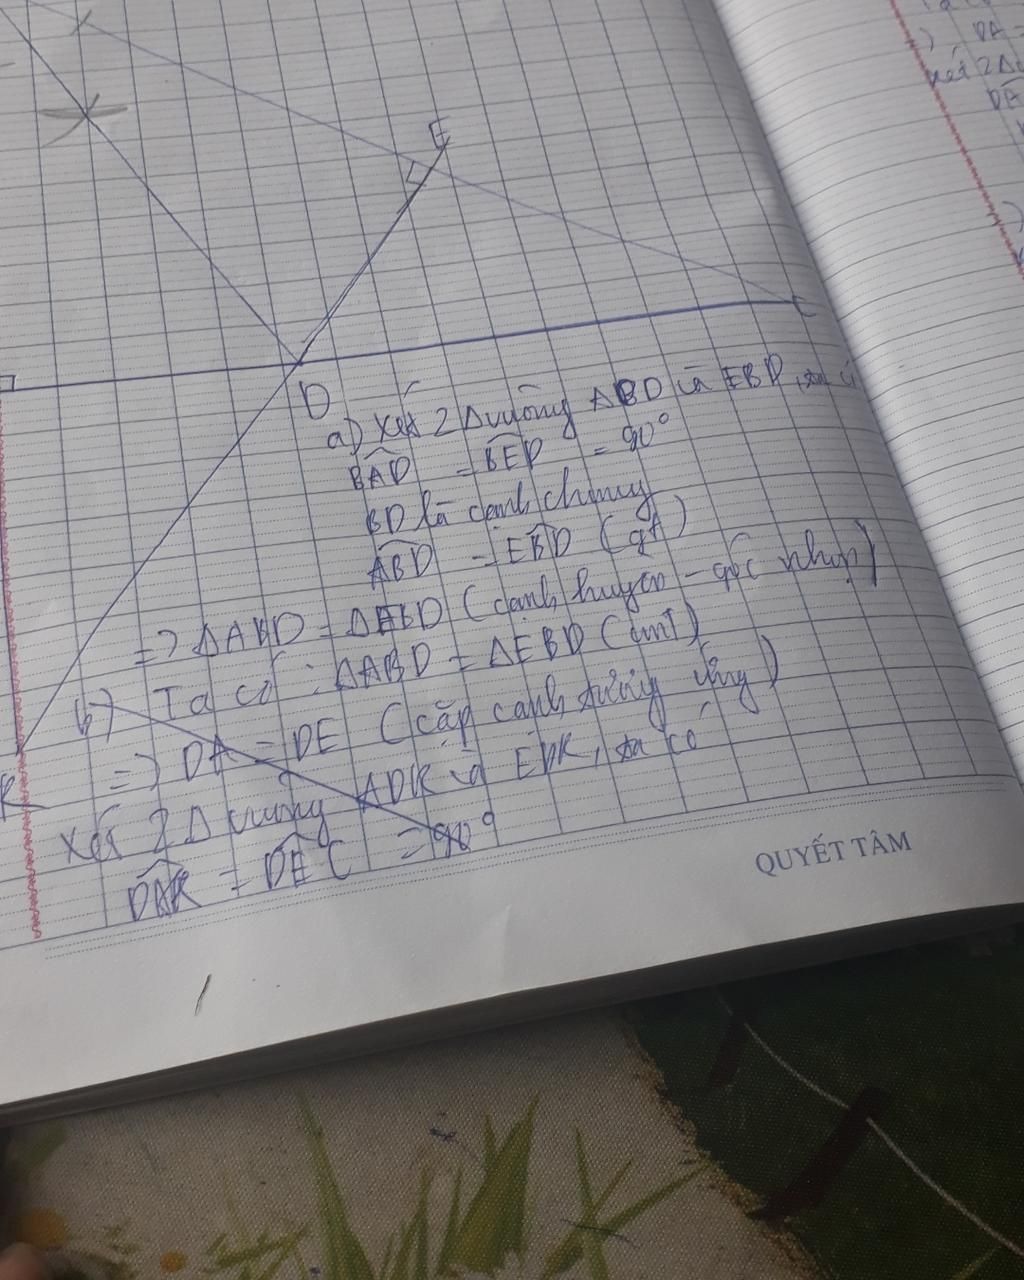 E
C
D
a) Xét 2 Δ vuông ABD và EBD, ta có
BAD = BED = 90°
BD là cạnh chung
ABD = EBD (gt)
=> ΔABD = ΔEBD (cạnh huyền - góc nhọn)
b) Ta có: ΔABD = ΔEBD (cmt)
=> DA = DE (cặp cạnh tương ứng)
K
Xét 2 Δ vuông ADK và EDK, ta có
DAK = DEC = 90°
QUYẾT TÂM
DA
Xét 2Δ
DA